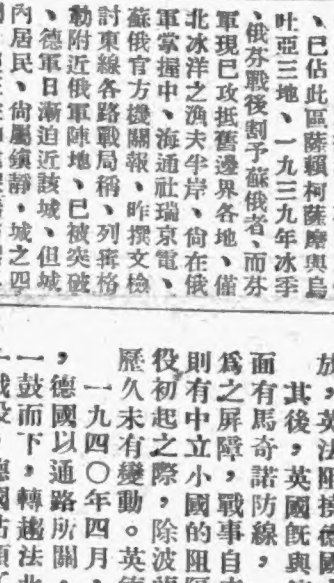 、已佔此區薩賴柯薩摩與烏
吐亞三地、一九三九年冰季
、俄芬戰後割予蘇俄者、而芬
軍現已攻抵舊邊界各地、僅
北冰洋之漁夫半岸、尙在俄
軍掌握中、海通社瑞京電、
蘇俄官方機關報、昨撰文檢
討東線各路戰局稱、列寗格
勒附近俄軍陣地、已被突破
、德軍日漸迫近該城、但城
內居民、尙屬鎭靜、城之四
放，英法阻撓德國
其後，英國旣與
面有馬奇諾防線，
爲之屛障，戰事自
則有中立小國的阻
役初起之際，除波
歷久未有變動。英
一九四〇年四月，
，德國以通路所關，
一鼓而下，轉趨法北